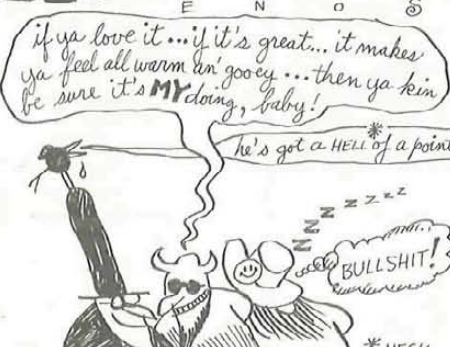 E N O S
if ya love it...if it's great... it makes
ya feel all warm an' gooey ...then ya kin
be sure it's MY doing, baby!
he's got a HELL* of a point
Z Z Z Z Z Z Z
BULLSHIT!
* HECK